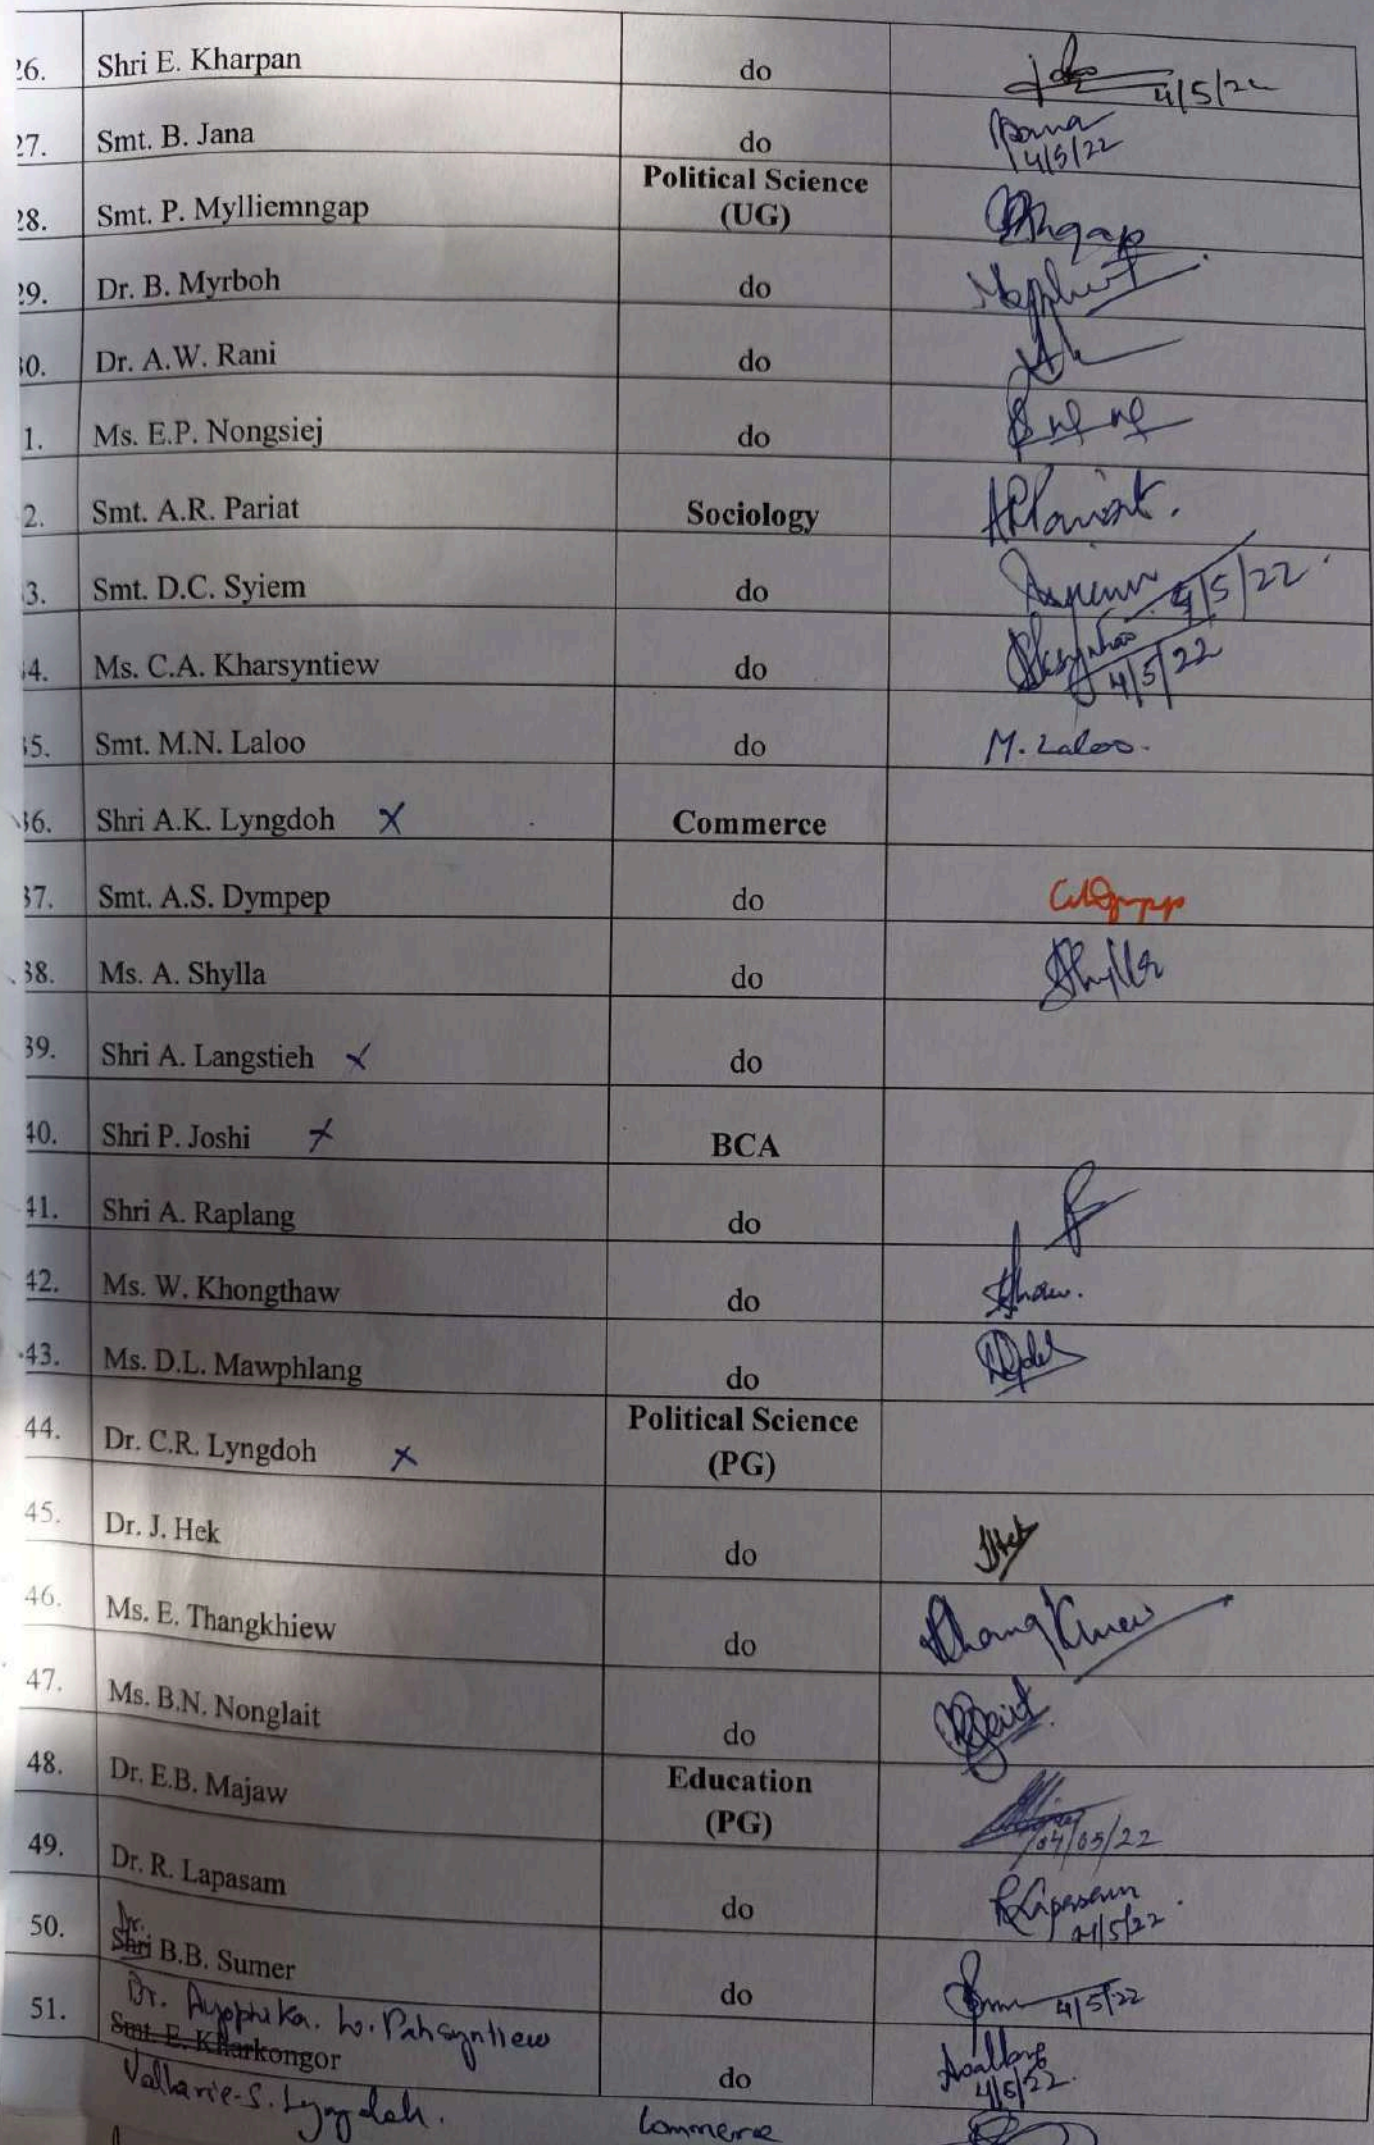 26. Shri E. Kharpan do 4/5/22
27. Smt. B. Jana do 4/5/22
Political Science
28. Smt. P. Mylliemngap (UG)
29. Dr. B. Myrboh do
30. Dr. A.W. Rani do
1. Ms. E.P. Nongsiej do
2. Smt. A.R. Pariat Sociology ARPariat.
3. Smt. D.C. Syiem do 4/5/22
34. Ms. C.A. Kharsyntiew do 4/5/22
35. Smt. M.N. Laloo do M. Laloo.
36. Shri A.K. Lyngdoh X Commerce
37. Smt. A.S. Dympep do
38. Ms. A. Shylla do AShylla
39. Shri A. Langstieh X do
40. Shri P. Joshi X BCA
41. Shri A. Raplang do
42. Ms. W. Khongthaw do
43. Ms. D.L. Mawphlang do
Political Science
44. Dr. C.R. Lyngdoh X (PG)
45. Dr. J. Hek do JHek
46. Ms. E. Thangkhiew do
47. Ms. B.N. Nonglait do
Education
48. Dr. E.B. Majaw (PG) 04/05/22
49. Dr. R. Lapasam do RLapasam
4/5/22
Dr.
50. Shri B.B. Sumer do 4/5/22
Dr. W. Pahsyntiew
51. Smt. E. Kharkongor do 4/5/22
Vallarie S. Lyngdoh. Commerce